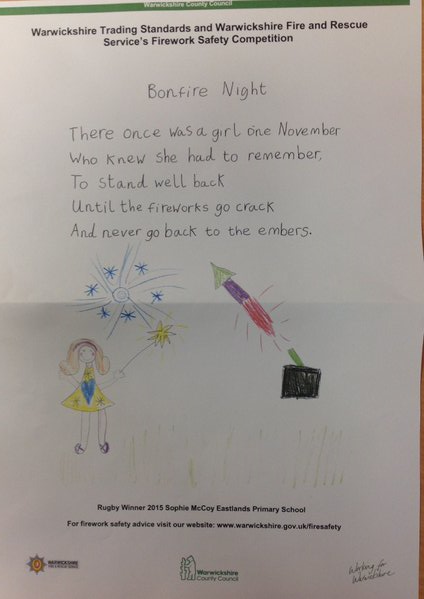 Warwickshire County Council
Warwickshire Trading Standards and Warwickshire Fire and Rescue
Service's Firework Safety Competition
Bonfire Night
There once was a girl one November
Who knew she had to remember,
To stand well back
Until the fireworks go crack
And never go back to the embers.
Rugby Winner 2015 Sophie McCoy Eastlands Primary School
For firework safety advice visit our website: www.warwickshire.gov.uk/firesafety
WARWICKSHIRE
FIRE & RESCUE SERVICE
Warwickshire
County Council
Working for
Warwickshire